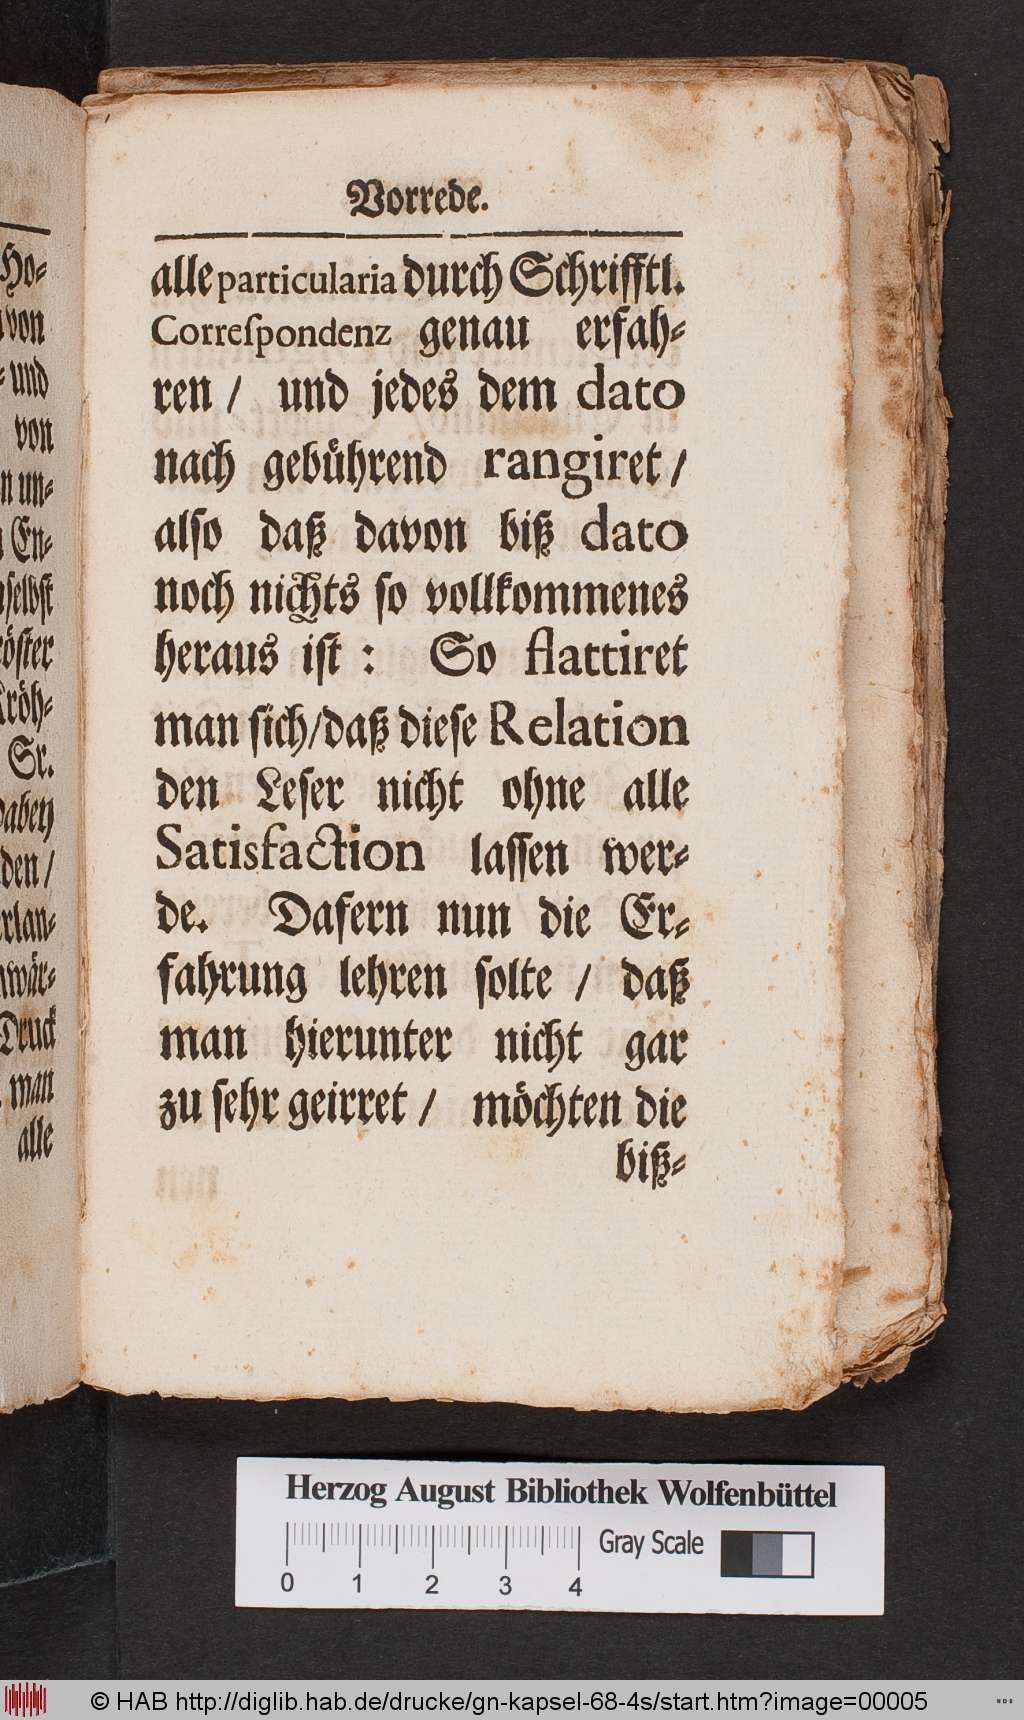 Ho-
von
und
von
un-
En-
selbst
Kröh-
Sr.
dabey
den /
Druck
man
alle
Vorrede.
alle particularia durch Schrifftl.
Correſpondenz genau erfah-
ren / und jedes dem dato
nach gebührend rangiret /
alſo daß davon biß dato
noch nichts ſo vollkommenes
heraus iſt : So flattiret
man ſich/daß dieſe Relation
den Leſer nicht ohne alle
Satisfaction laſſen wer-
de. Dafern nun die Er-
fahrung lehren ſolte / daß
man hierunter nicht gar
zu ſehr geirret / möchten die
biß-
Herzog August Bibliothek Wolfenbüttel
Gray Scale
0 1 2 3 4
© HAB http://diglib.hab.de/drucke/gn-kapsel-68-4s/start.htm?image=00005